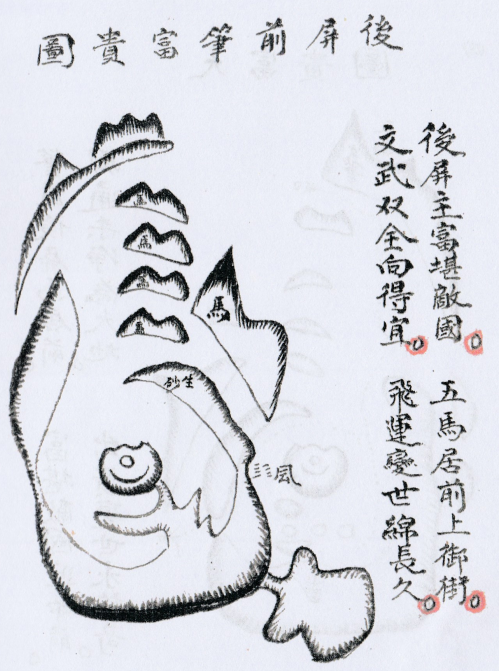 後屏前筆富貴圖
後屏主富堪敵國。五馬居前上御街。
文武双全向得宜。飛運變世綿長久。
馬
馬
馬
馬
馬
生砂
風